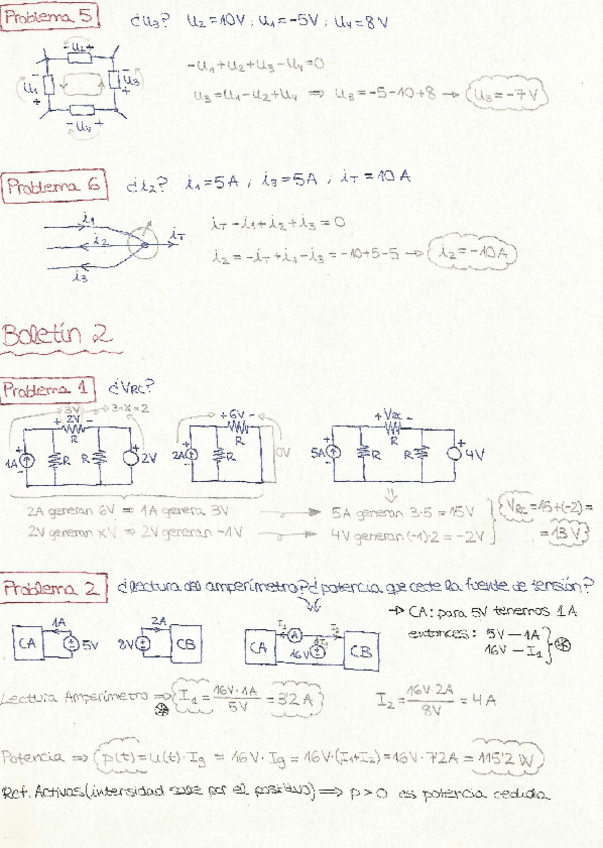 Problema 5 ¿U3? U2=10V ; U1=-5V ; U4=8V
-U2+
-U1+U2+U3-U4=0
U1 U3
U3=U1-U2+U4 ⇒ U3=-5-10+8 → U3=-7V
-U4+
Problema 6 ¿i2? i1=5A ; i3=5A ; iT=10A
i1
i2 iT
i3
iT-i1+i2+i3=0
i2=-iT+i1-i3=-10+5-5 → i2=-10A
Boletín 2
Problema 1 ¿VRC?
3V → 3+x=2
+2V- +6V- +VRC-
R R R
1A R R 2V 2A R 0V 5A R R 4V
2A generan 6V ⇒ 1A genera 3V → 5A generan 3·5=15V
2V generan xV ⇒ 2V generan -1V → 4V generan (-1)·2=-2V
VRC=15+(-2)=
=13V
Problema 2 ¿lectura del amperímetro? ¿potencia que cede la fuente de tensión?
→ CA: para 5V tenemos 1A
entonces: 5V — 1A
16V — I1
CA 1A 5V 2V 2A CB CA I1 A I2 16V Ig CB
Lectura Amperímetro ⇒ I1=16V·1A/5V=3'2A I2=16V·2A/8V=4A
Potencia ⇒ p(t)=u(t)·Ig = 16V·Ig=16V·(I1+I2)=16V·7'2A=115'2W
Ref. Activas (intensidad sale por el positivo) ⇒ p>0 es potencia cedida